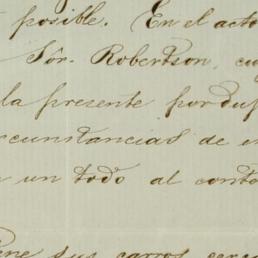 posible. En el acto
Sõr. Robertson, cu
la presente por dup
rcunstancias de e
un todo al conto
ene sus carros cerc